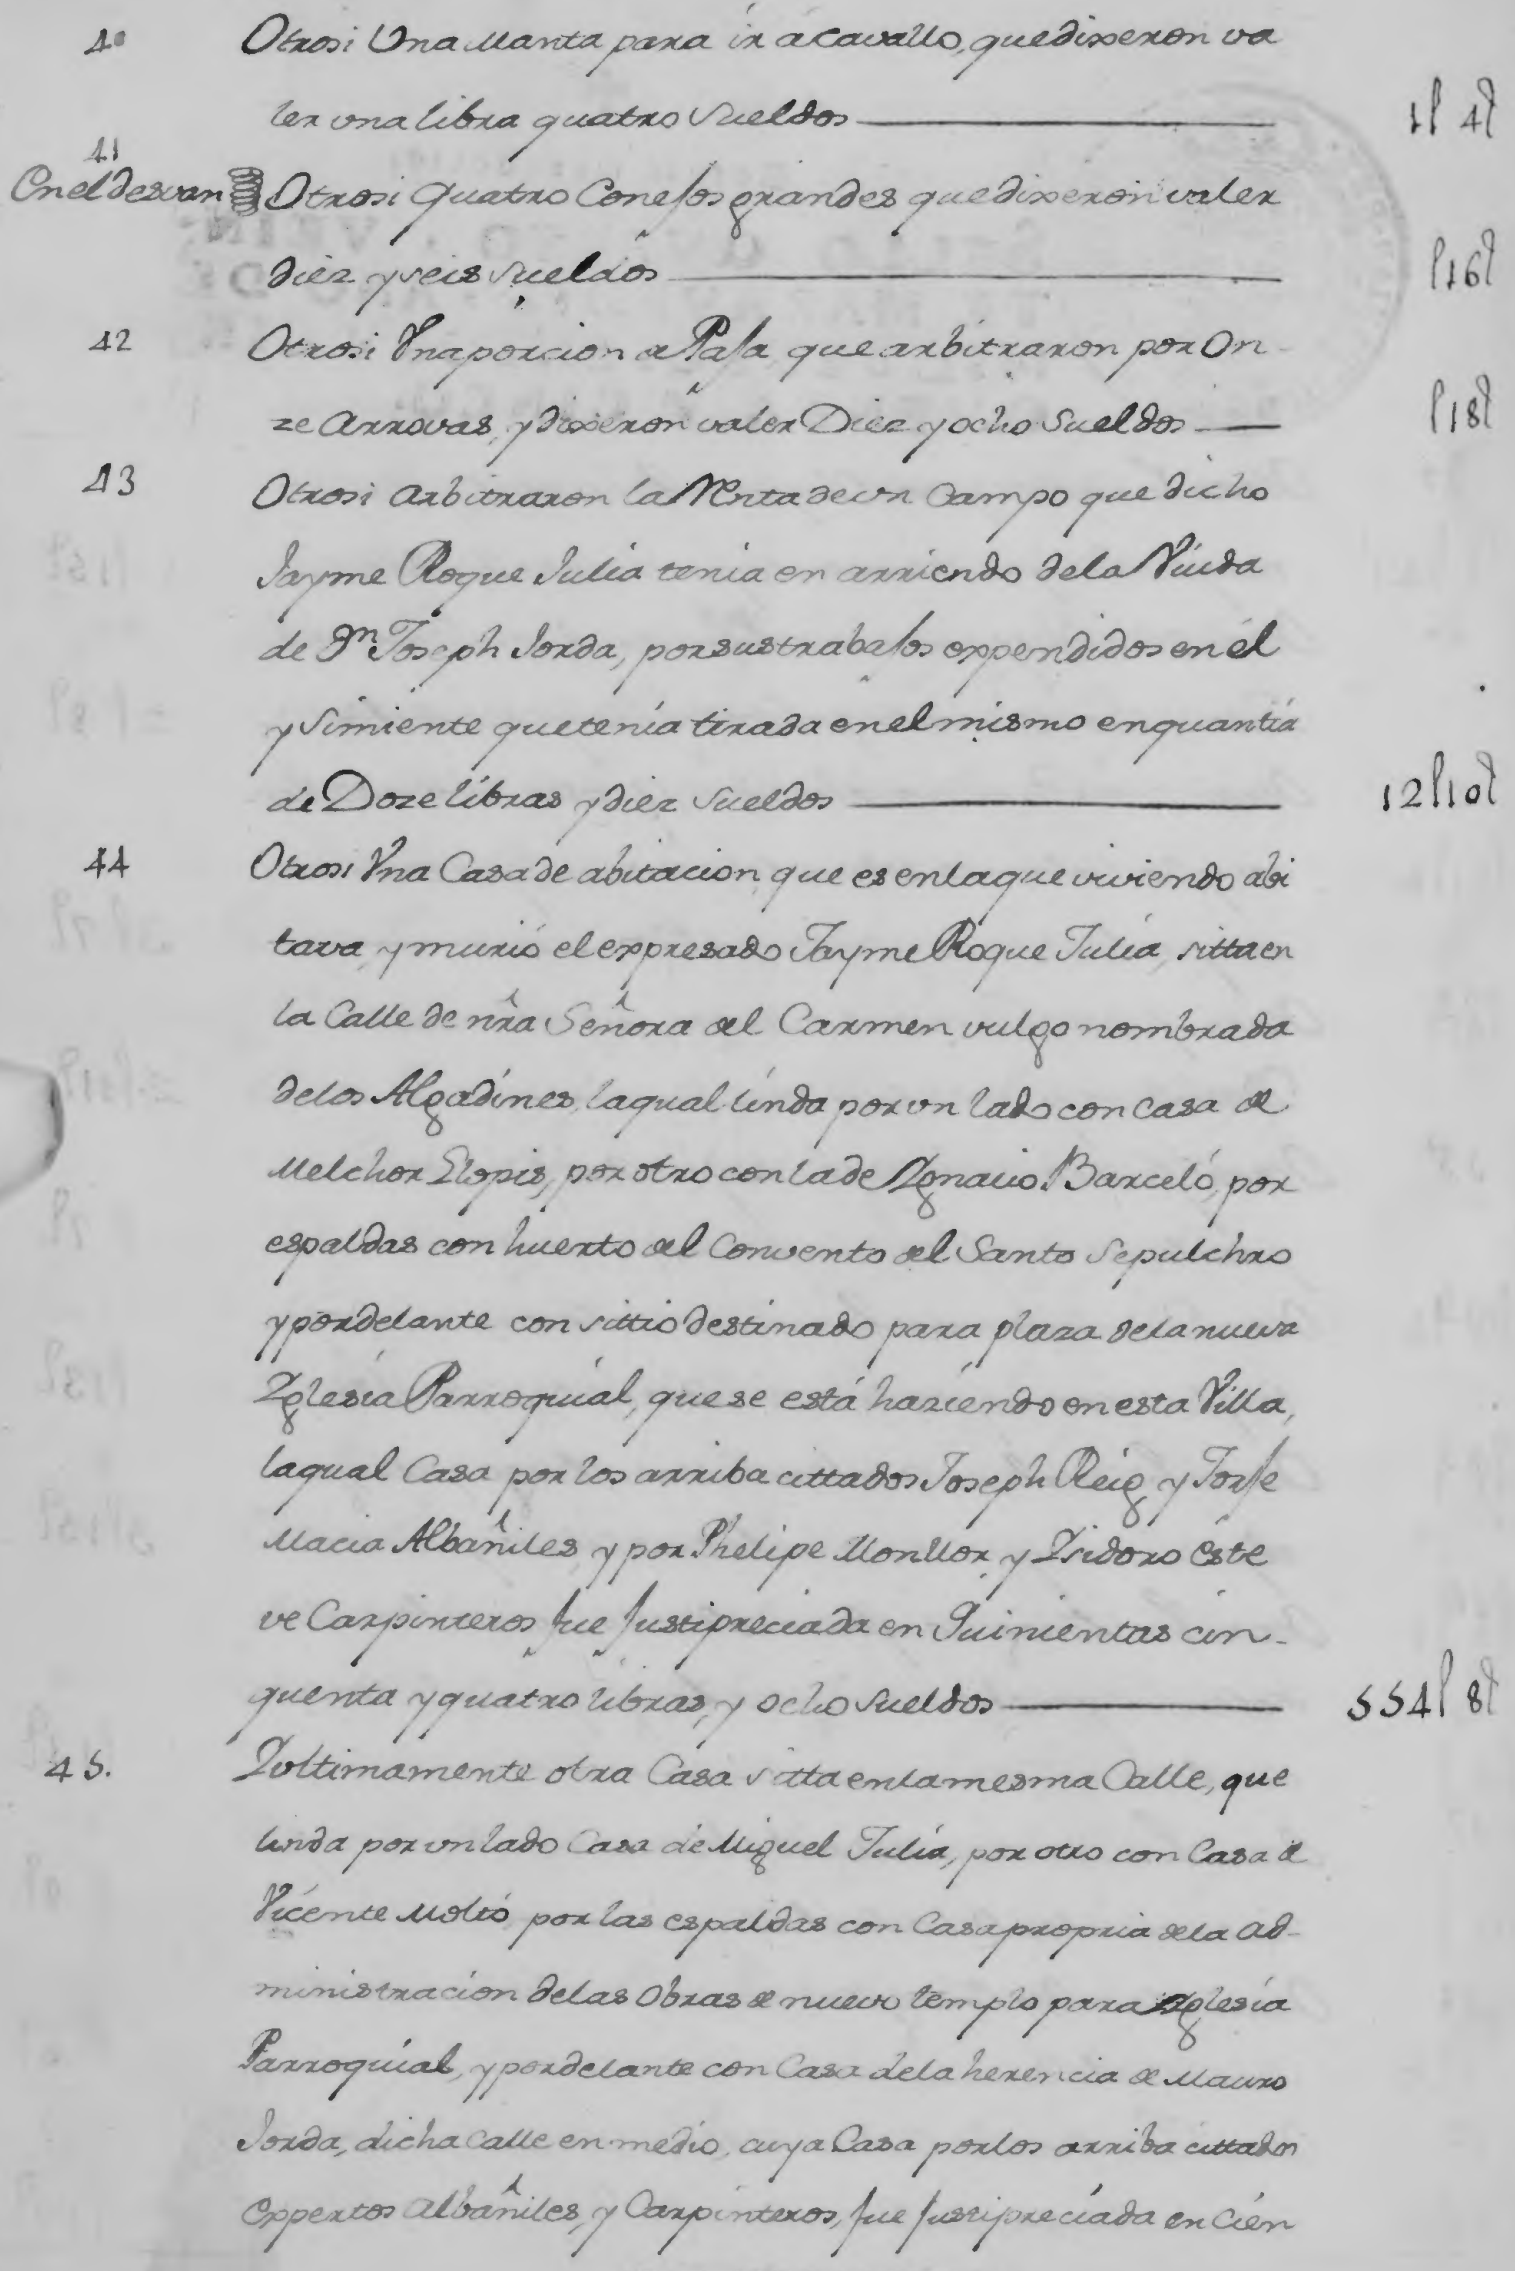 40 Otrosi Una Manta para ir a cavallo, que dixeron va
ler una libra quatro Sueldos 1l 4s
41
En el desvan Otrosi Quatro Conejos grandes que dixeron valer
diez y seis Sueldos l16s
42 Otrosi Una porcion de Paja que arbitraron por On-
ze Arrovas, y dixeron valer Diez y ocho Sueldos l18s
43 Otrosi Arbitraron la Renta de un Campo que dicho
Jayme Roque Julia tenia en arriendo de la Viuda
de Dn Joseph Jorda, por sus trabajos expendidos en él
y Simiente que tenía tirada en el mismo en quantia
de Doze libras y diez Sueldos 12l10s
44 Otrosi Una Casa de abitacion que es en la que viviendo abi
tava, y murió el expresado Jayme Roque Julia, sitta en
la Calle de nra Señora del Carmen vulgo nombrada
de los Algadines, la qual linda por un lado con casa de
Melchor Llopis, por otro con la de Ygnacio Barceló, por
espaldas con huerto del Convento del Santo Sepulchro
y por delante con sittio destinado para plaza de la nueva
Yglesia Parroquial, que se está haziendo en esta Villa,
la qual Casa por los arriba cittados Joseph Reig y Jorje
Macia Albañiles, y por Phelipe Monllor, y Ysidoro Este
ve Carpinteros fue justipreciada en Quinientas cin-
quenta y quatro libras, y ocho Sueldos 554l 8s
45. Yultimamente otra Casa sitta en la mesma Calle, que
linda por un lado Casa de Miguel Julia, por otro con Casa de
Vicente Moltó por las espaldas con Casa propria de la Ad-
ministracion de las Obras de nuevo templo para Yglesia
Parroquial, y por delante con Casa de la herencia de Mauro
Jorda, dicha calle en medio, cuya Casa por los arriba cittados
Expertos Albañiles, y Carpinteros, fue justipreciada en Cien